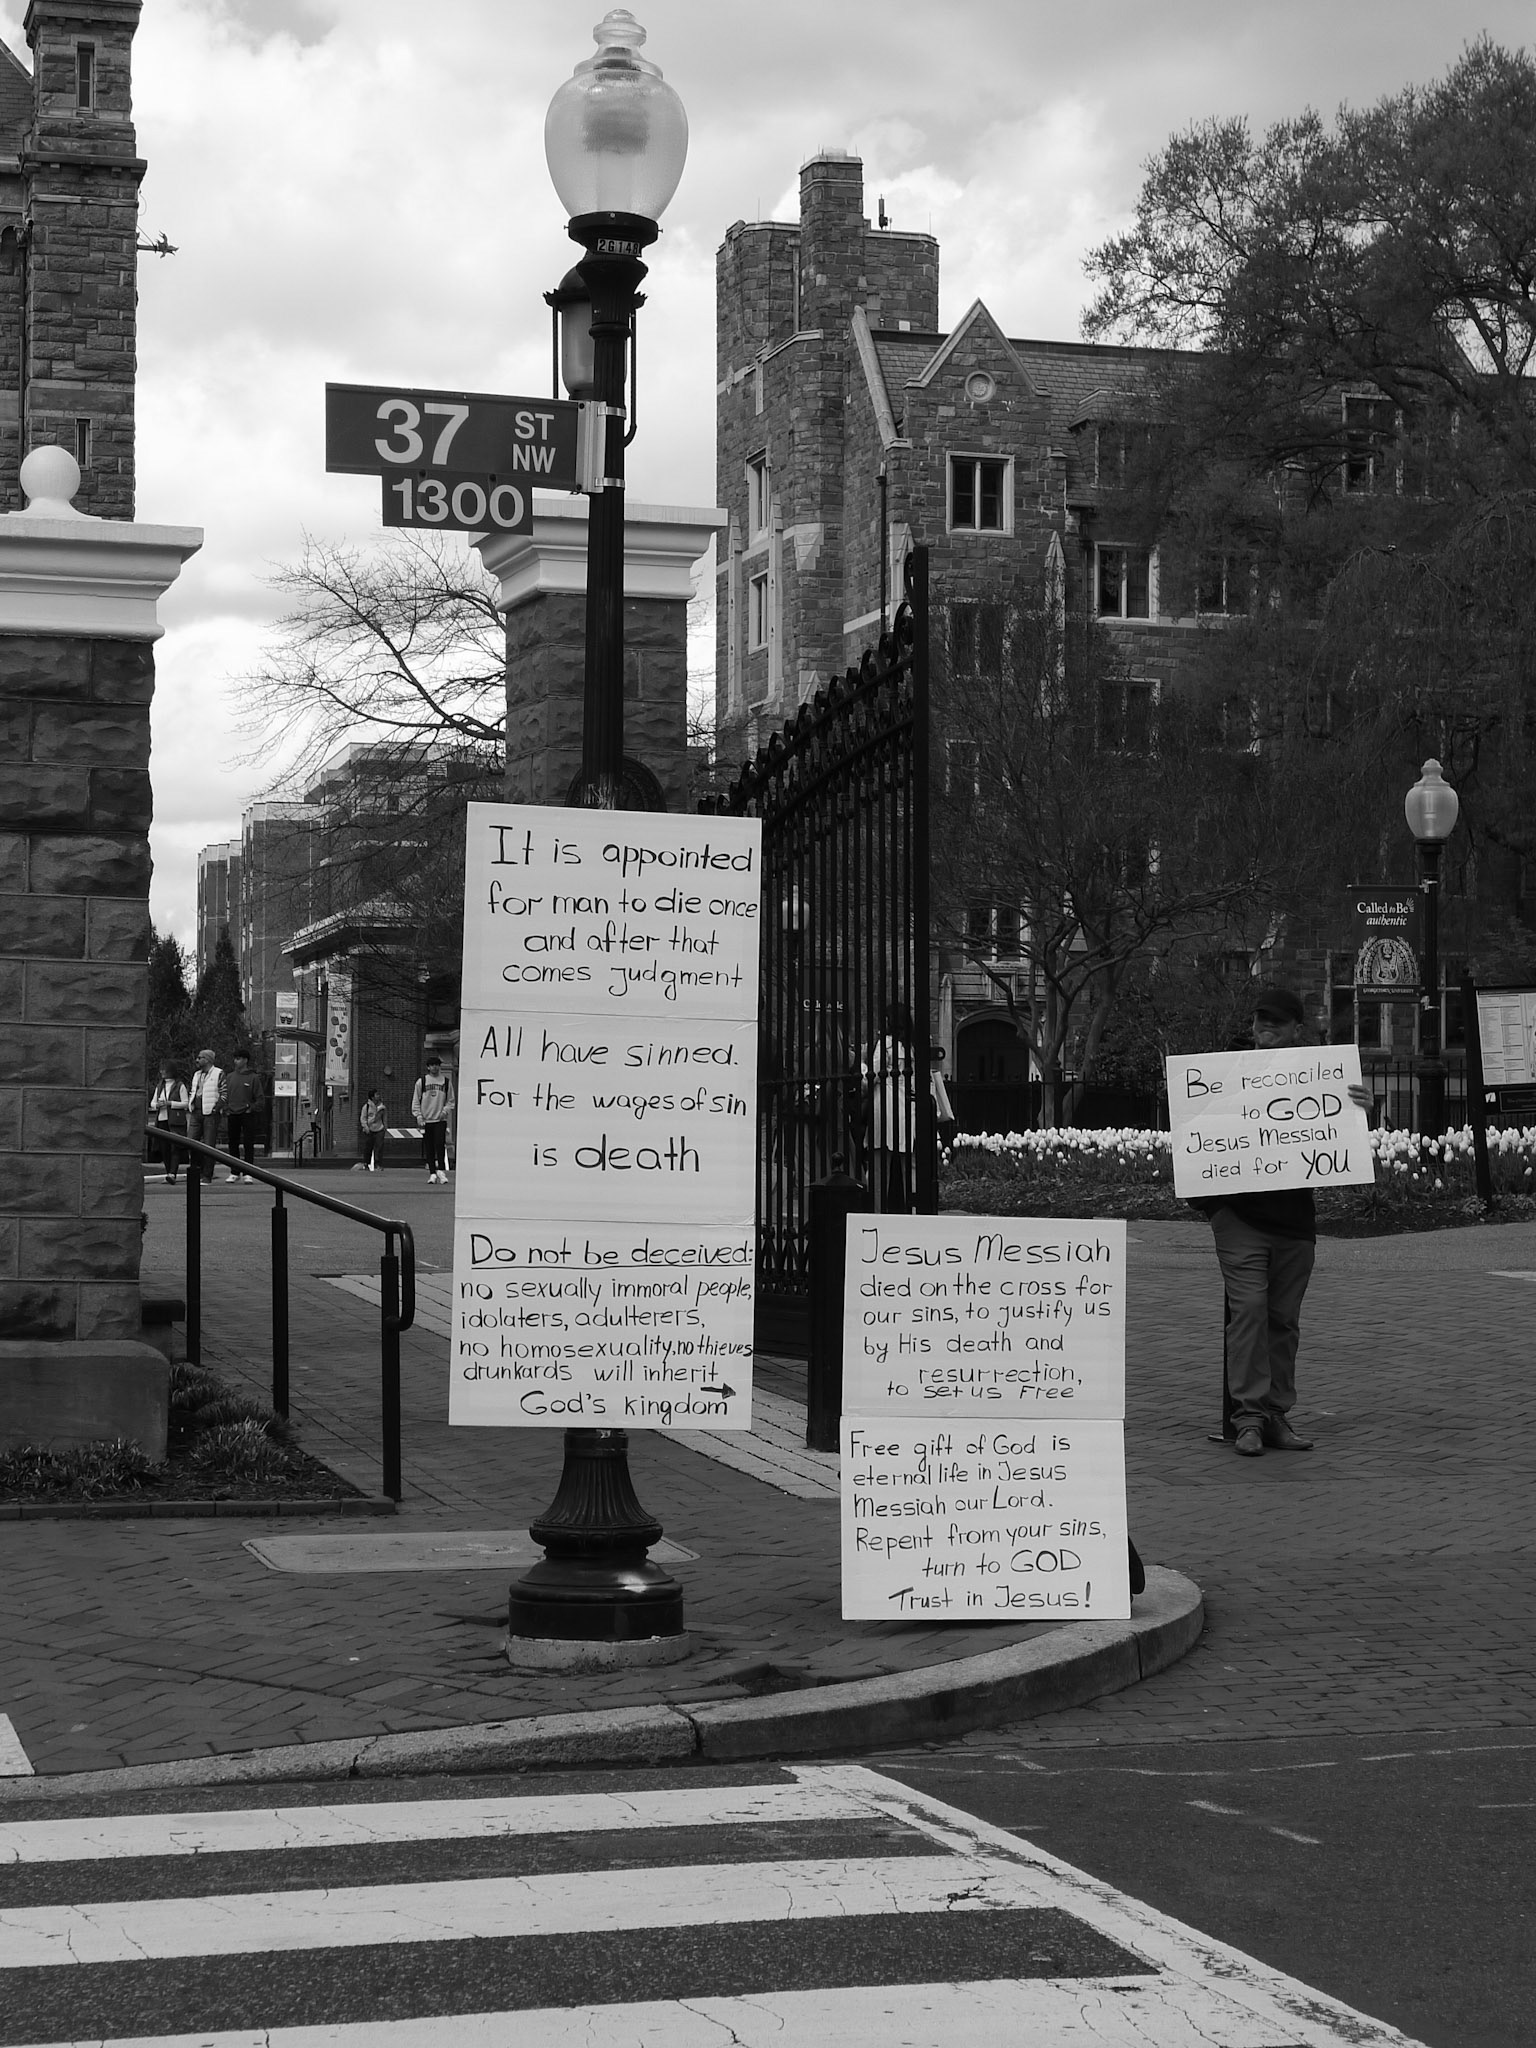 2G148
37 ST NW
1300
It is appointed
for man to die once
and after that
comes judgment
All have sinned.
For the wages of sin
is death
Do not be deceived:
no sexually immoral people,
idolaters, adulterers,
no homosexuality, no thieves
drunkards will inherit
God's kingdom
Jesus Messiah
died on the cross for
our sins, to justify us
by His death and
resurrection,
to set us Free
Free gift of God is
eternal life in Jesus
Messiah our Lord.
Repent from your sins,
turn to GOD
Trust in Jesus!
Be reconciled
to GOD
Jesus Messiah
died for YOU
Called to Be
authentic
GEORGETOWN UNIVERSITY